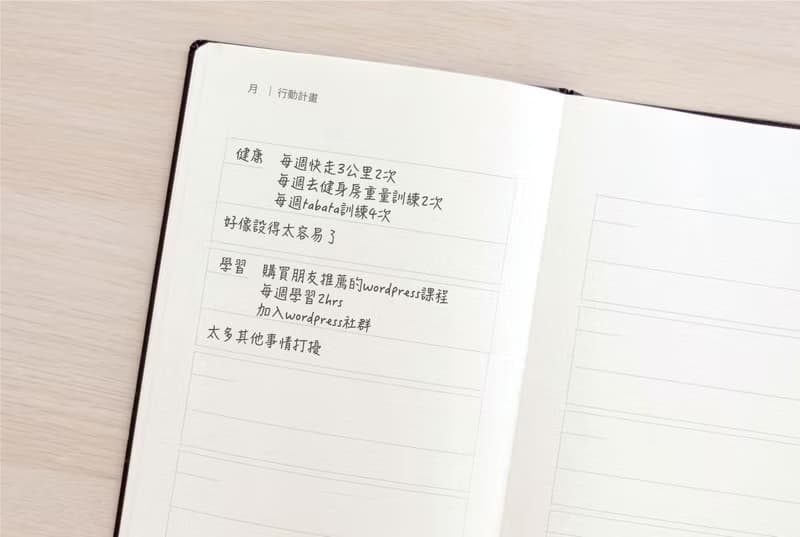 月 | 行動計畫
健康 每週快走3公里2次
每週去健身房重量訓練2次
每週tabata訓練4次
好像設得太容易了
學習 購買朋友推薦的wordpress課程
每週學習2hrs
加入wordpress社群
太多其他事情打擾